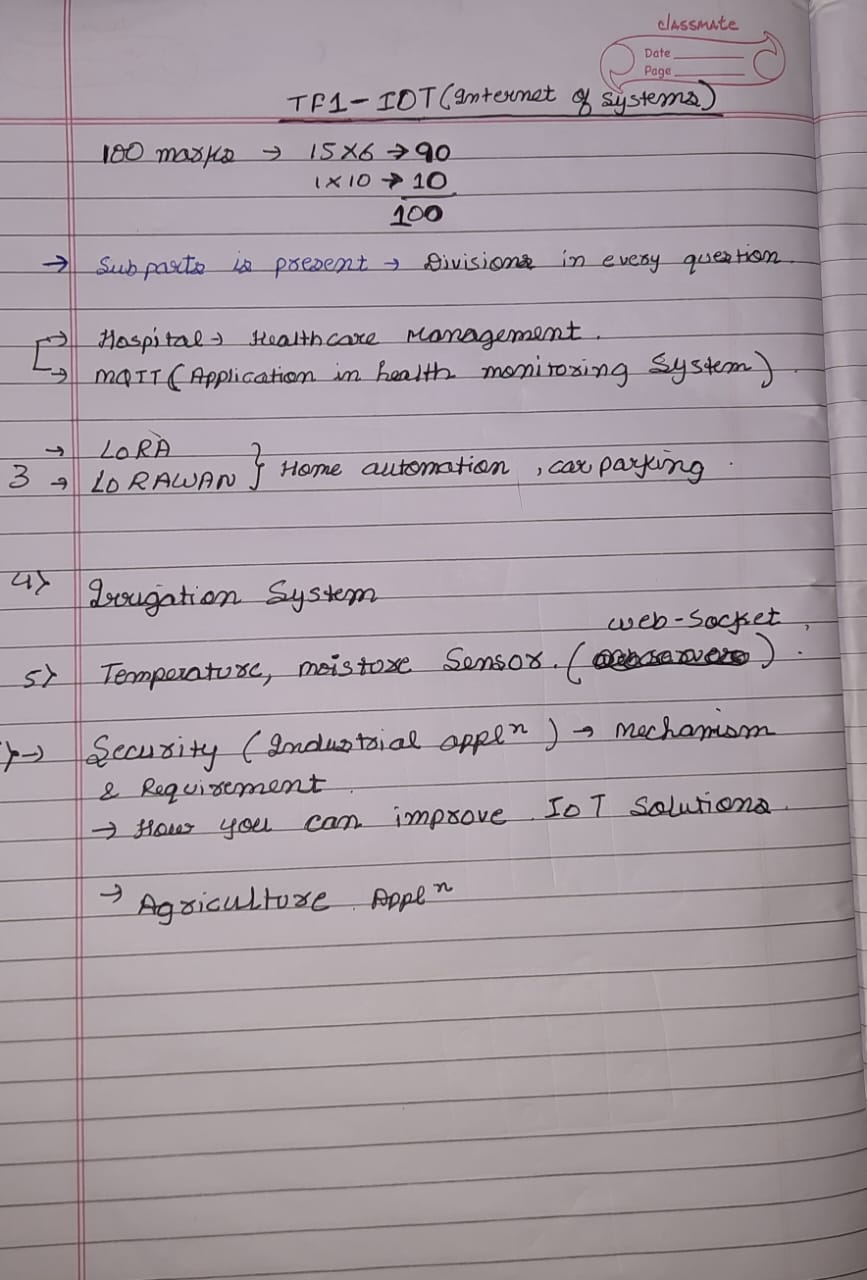 classmate
Date
Page
TF1 - IOT (Internet of Systems)
100 marks → 15 X 6 → 90
1 X 10 → 10
100
→ Sub parts is present → Divisions in every question.
→ Hospital → Healthcare Management.
→ MQTT (Application in health monitoring System).
→ LORA
3 → LORAWAN } Home automation, car parking.
4> Irrugation System
web-Socket,
5> Temperature, moistore Sensor. ( ).
→ Security (Industrial applⁿ) → Mechanism
& Requirement.
→ How you can improve IoT Solutions.
→ Agriculture Applⁿ